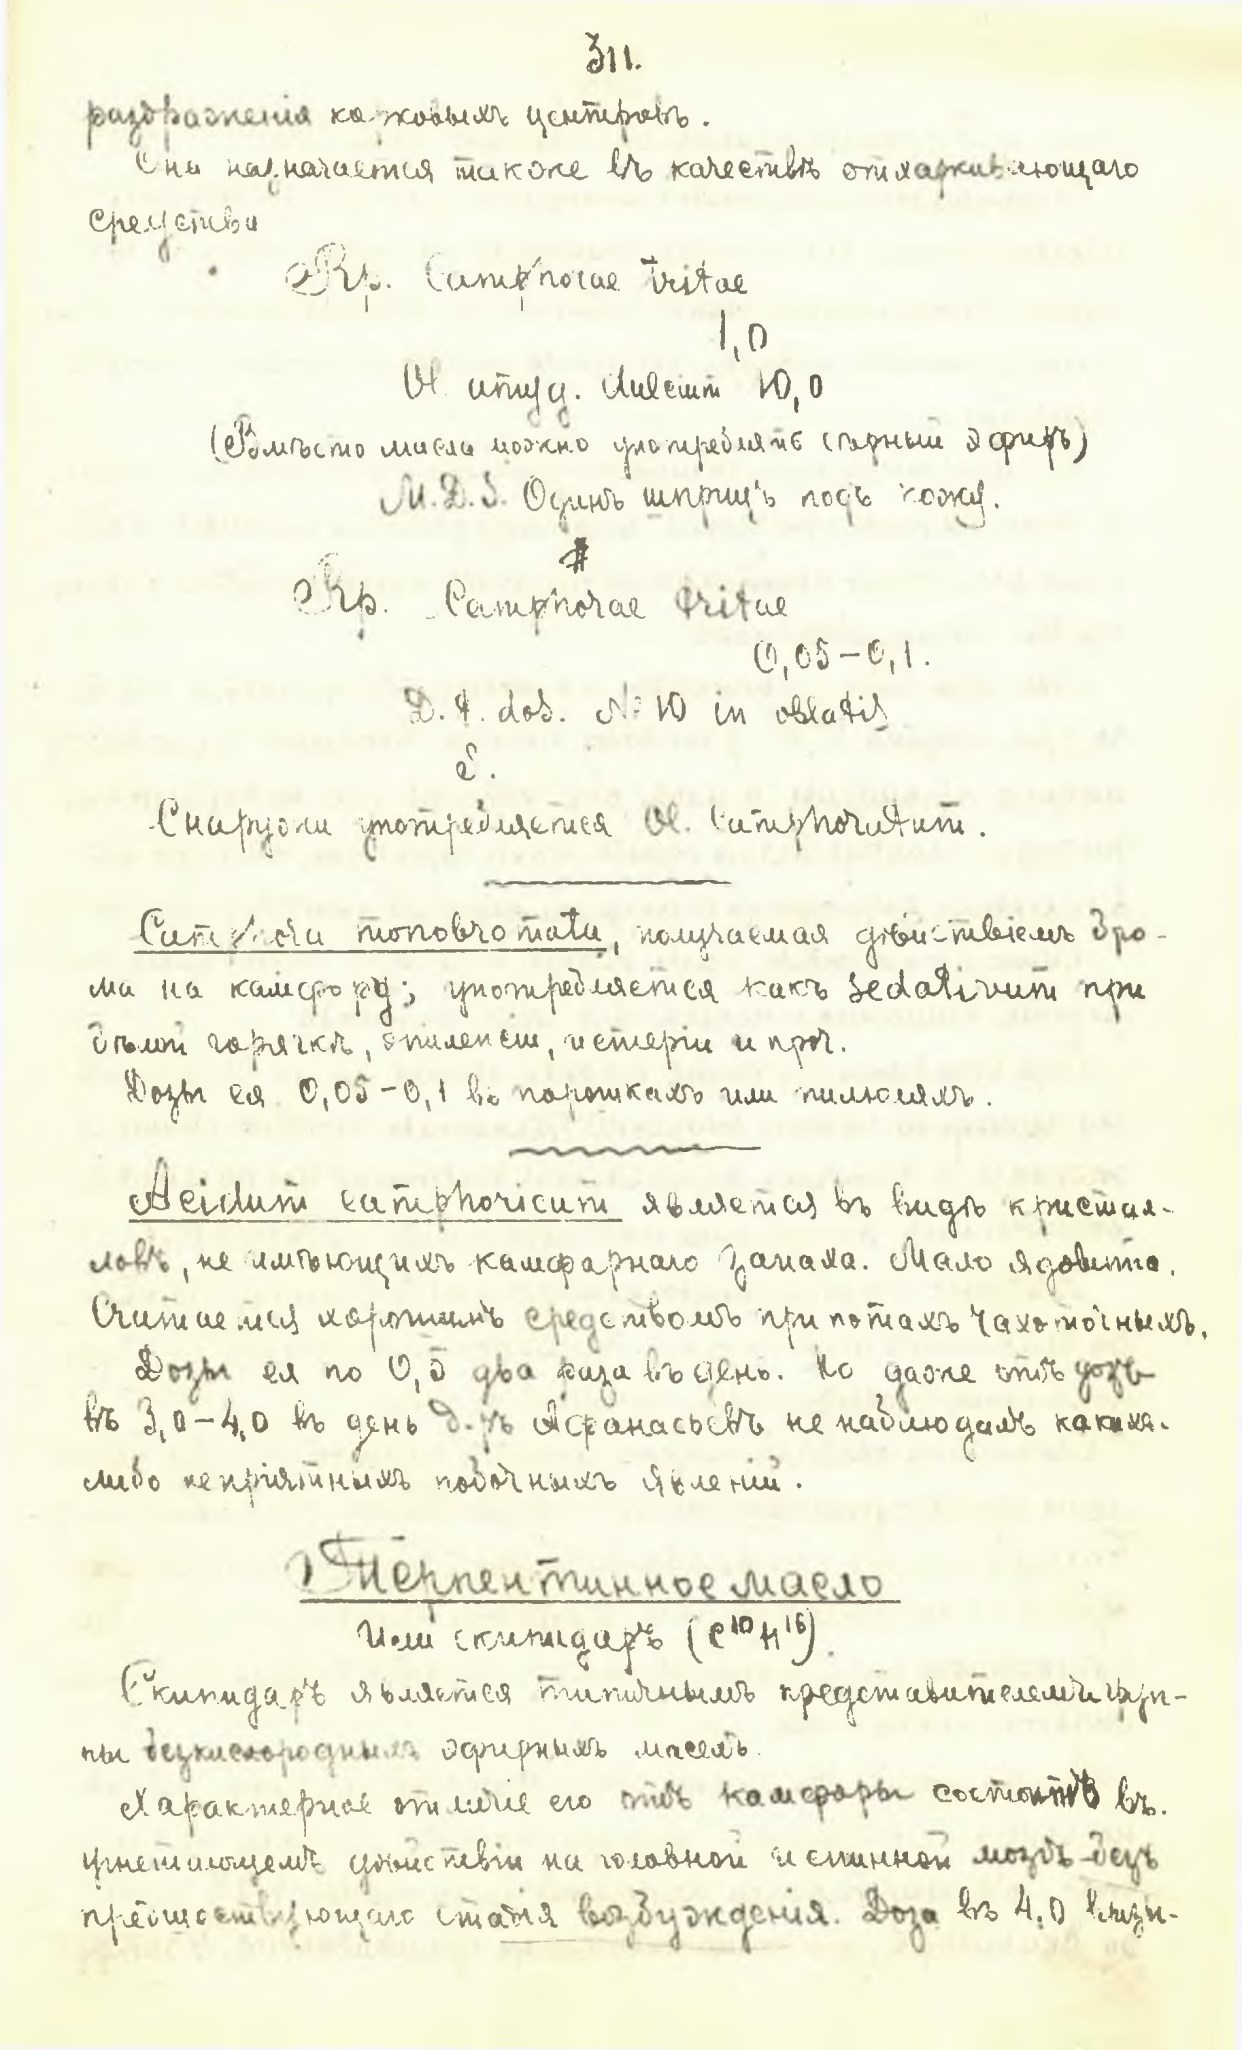 311.
раздраженія корковыхъ центровъ.
Она назначается также въ качествѣ отхаркивающаго
средства
Rp. Camphorae tritae
1,0
Ol. amygd. dulcium 10,0
(Вмѣсто масла можно употреблять сѣрный эфиръ)
M.D.S. Одинъ шприцъ подъ кожу.
#
Rp. Camphorae tritae
0,05-0,1.
D.t. dos. № 10 in oblatis
S.
Снаружи употребляется Ol. Camphoratum.
Camphora monobromata, получаемая дѣйствіемъ бро-
ма на камфору; употребляется какъ sedativum при
бѣлой горячкѣ, эпилепсіи, истеріи и проч.
Дозы ея 0,05-0,1 въ порошкахъ или пилюляхъ.
Acidum camphoricum является въ видѣ кристал-
ловъ, не имѣющихъ камфарнаго запаха. Мало ядовита.
Считается хорошимъ средствомъ при потахъ чахоточныхъ.
Дозы ея по 0,5 два раза въ день. Но даже отъ дозъ
въ 3,0-4,0 въ день д-ръ Афанасьевъ не наблюдалъ какихъ-
либо непріятныхъ побочныхъ явленій.
Терпентинное масло
или скипидаръ (C¹⁰H¹⁶).
Скипидаръ является типичнымъ представителемъ груп-
пы безкислородныхъ эфирныхъ маселъ.
Характерное отличіе его отъ камфоры состоитъ въ
угнетающемъ дѣйствіи на головной и спинной мозгъ безъ
предшествующаго стадія возбужденія. Доза въ 4,0 вызы-